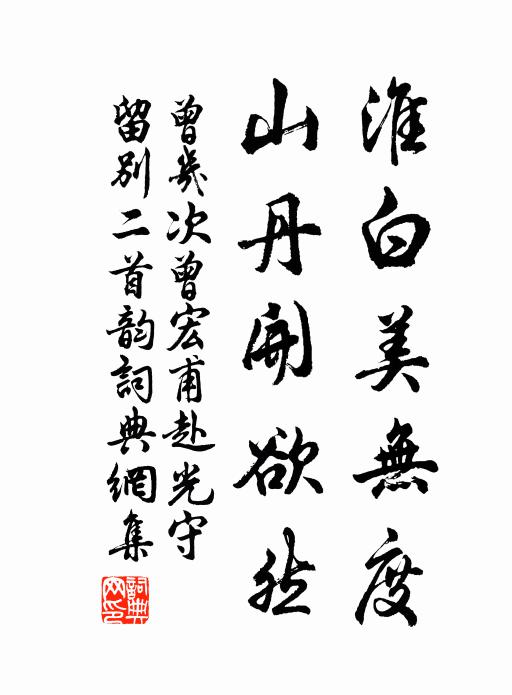 淮白美無度
山丹開欲然
曾幾次曾宏甫赴光守
留別二首韵詞典網集
詞典